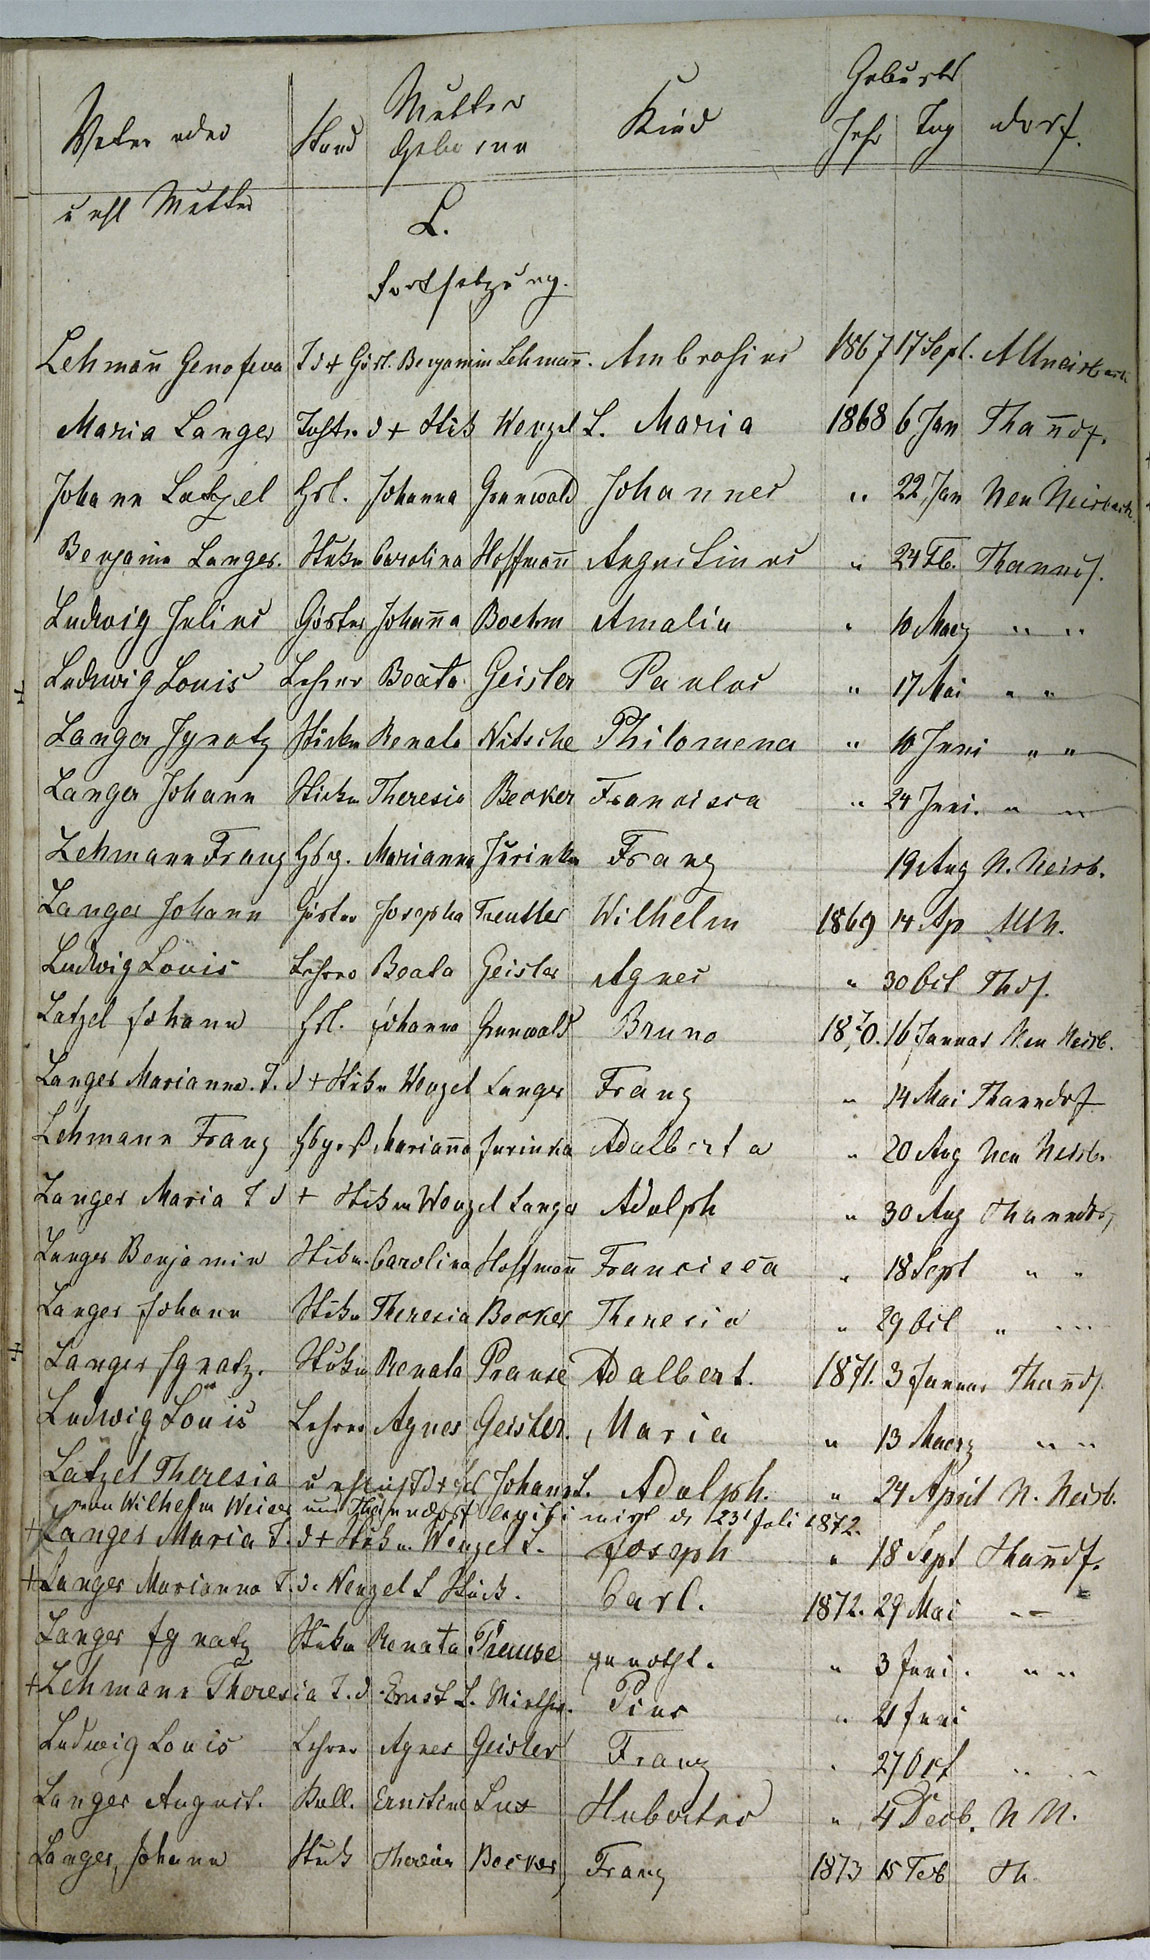 Geburts
Vater oder Stand Mutter Geborene Kind Jahr Tag dorf.
u ehl Mutter
L.
Fortsetzung.
Lehman̄ Genofeva T d + Gärt. Benjamin Lehman̄. Ambrosius 1867 17 Sept. Altneisbach
Maria Langer Tochtr. d + Stük Wenzel L. Maria 1868 6 Jan Than̄df.
Johann Latzel Hsl. Johanna Grunwald Johannes " 22 Jan Neu Neisbach.
Benjamin Langer. Stükm Carolina Hoffman̄ Augustinus " 24 Feb. Thanndf.
Ludwig Julius Gärtner Johan̄a Boehm Amalia " 10 Maerz " "
Ludwig Louis Lehrer Beata Geisler Paulus " 17 Mai " "
Langer Ignatz Stückm Renata Nitsche Philomena " 10 Juni " "
Langer Johann Stückm Theresia Becker Francisca " 24 Juni. " "
Lehmann Franz Hsg. Marianna Jurinka Franz 19 Aug N. Neisb.
Langer Johann Gärtner Josepha Treutler Wilhelm 1869 14 Ap Altn.
Ludwig Louis Lehrer Beata Geisler Agnes " 30 Oct Thdf.
Latzel Johann Hsl. Johanna Grunwald Bruno 1870. 16 Januar Neu Neisb.
Langer Marianna. T. d + Stükm Wenzel Langer Franz " 14 Mai Thanndorf
Lehmann Franz Marian̄a Jurinka Adalberta " 20 Aug Neu Neisb.
Langer Maria T d + Stükm Wenzel Langer Adolph " 30 Aug Thanndrf
Langer Benjamin Stükm. Carolina Hoffman̄ Francisca " 18 Sept " "
Langer Johann Stükm Theresia Becker Theresia " 29 Oct " "
Langer Ignatz. Stükm Renata Prause Adalbert. 1871. 3 Januar Than̄df.
Ludwig Louis Lehrer Agnes Geisler. Maria " 13 Maerz " "
Latzel Theresia Johann L. Adolph. " 24 April N. Neisb.
von Wilhelm Weiser aus Thanndorf legitimirt d 23t Juli 1872.
+ Langer Maria T. d + Stükm. Wenzel L. Joseph " 18 Sept Than̄df.
+ Langer Marianna T. d. Wenzel L Stück. Carl. 1872. 29 Mai " "
Langer Ignatz Stükm Renata Prause genotht. " 3 Juni. " "
+ Lehmann Theresia T. d. Ernst L. Miether. Pius " 21 Juni
Ludwig Louis Lehrer Agnes Geisler Franz " 27 Oct " "
Langer August. Ernstine Lux Hubertus " 4 Decb. N N.
Langer, Johann Stük Theresia Becker Franz 1873 15 Feb Th.